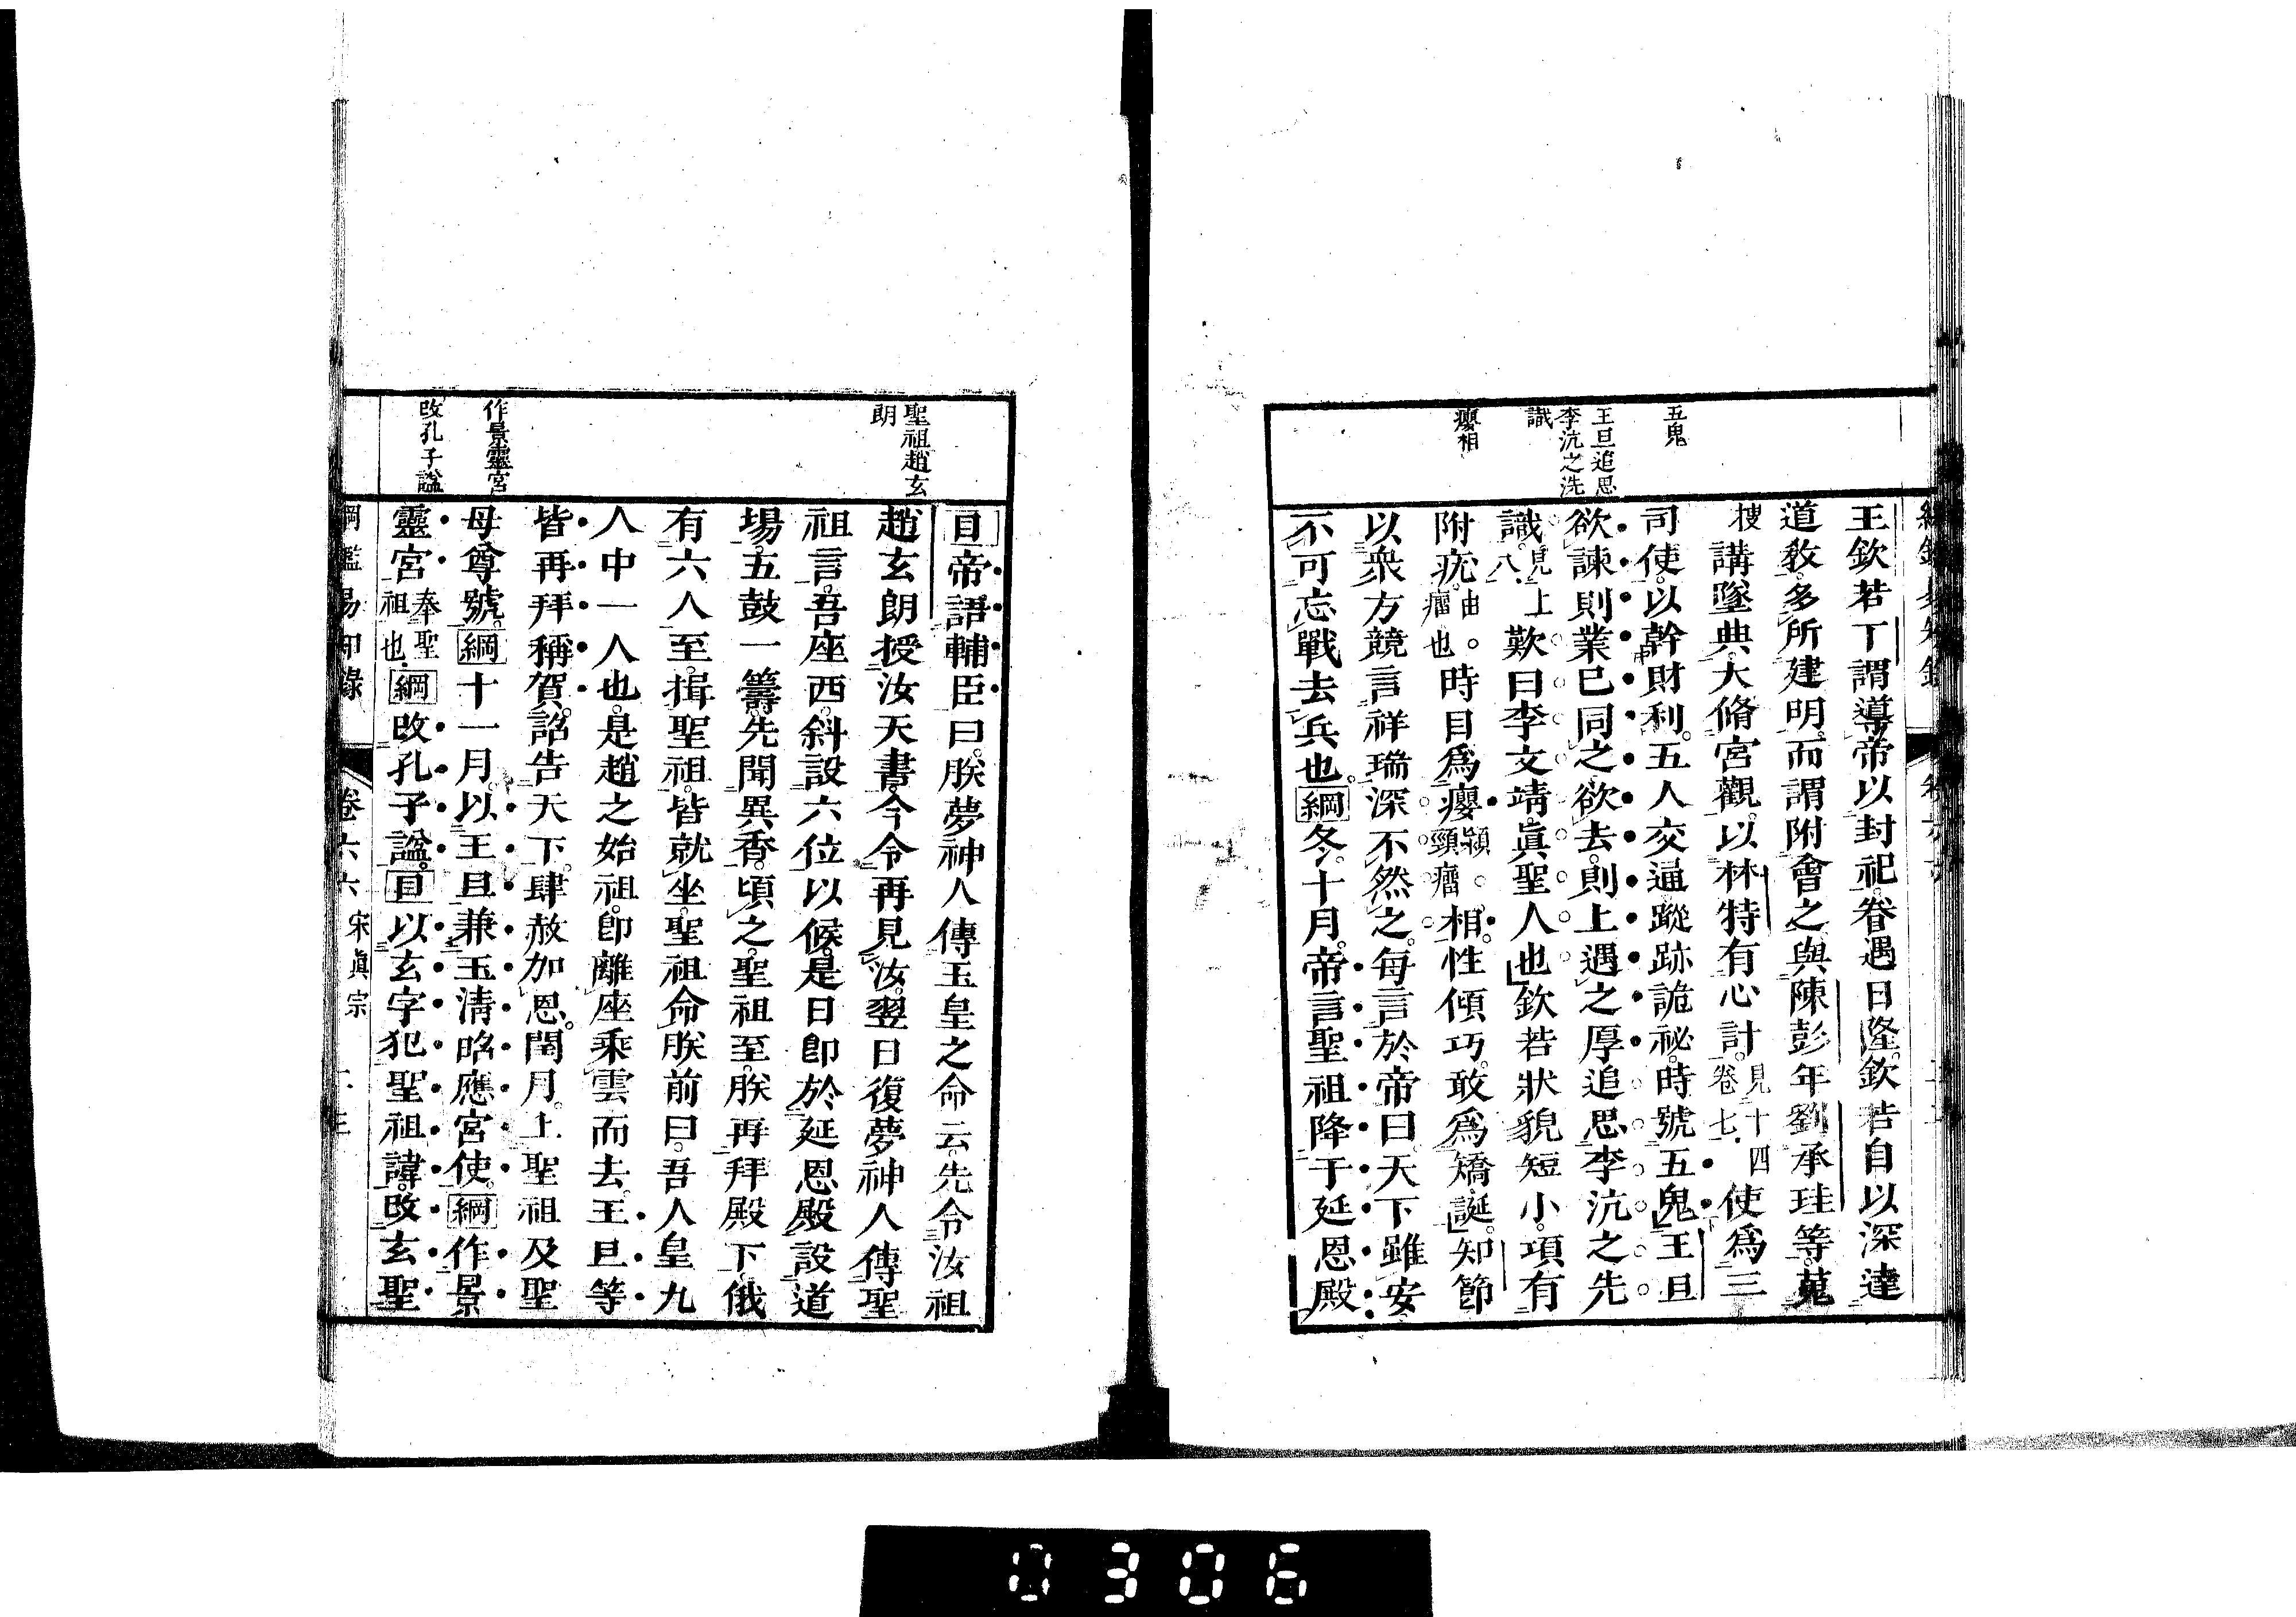 五鬼
王旦追思
李沆之先
識
癭相
王欽若丁謂導帝以封祀眷遇日隆欽若自以深達
道敎多所建明而謂附會之與陳彭年劉承珪等蒐
講墜典大脩宮觀以林特有心計見十四卷七使爲三
司使以幹財利五人交逼蹤跡詭祕時號五鬼王旦
欲諫則業已同之欲去則上遇之厚追思李沆之先
識見上八歎曰李文靖眞聖人也欽若狀貌短小項有
附疣由瘤也時目爲癭頸瘤相性傾巧敢爲矯誕知節
以衆方競言祥瑞深不然之每言於帝曰天下雖安
不可忘戰去兵也綱冬十月帝言聖祖降于延恩殿
聖祖趙玄
朗
作景靈宮
改孔子諡
目帝語輔臣曰朕夢神人傳玉皇之命云先令汝祖
趙玄朗授汝天書今令再見汝翌日復夢神人傳聖
祖言吾座西斜設六位以候是日卽於延恩殿設道
場五鼓一籌先聞異香頃之聖祖至朕再拜殿下俄
有六人至揖聖祖皆就坐聖祖命朕前曰吾人皇九
人中一人也是趙之始祖卽離座乘雲而去王旦等
皆再拜稱賀詔告天下肆赦加恩閏月上聖祖及聖
母尊號綱十一月以王旦兼玉淸昭應宮使綱作景
靈宮奉聖祖也綱改孔子諡目以玄字犯聖祖諱改玄聖
綱鑑易知錄 卷六六 宋眞宗